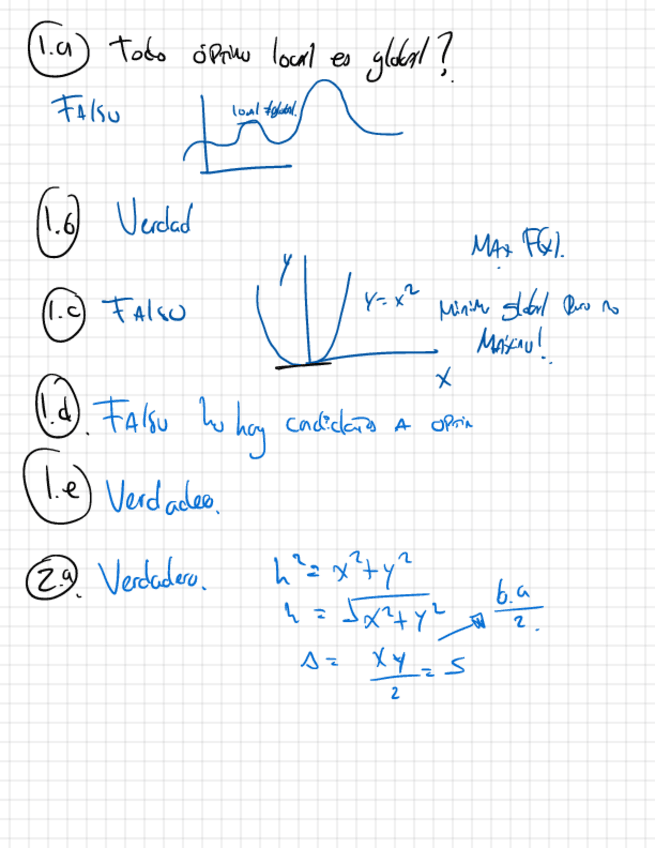 1.a Todo óptimo local es global?
Falso
local ≠ global.
1.b Verdad
Max F(x).
1.c Falso
y
y = x²
Minimo global pero no
Maximo!
x
1.d. Falso no hay candidatos a optim
1.e Verdadero.
2.a. Verdadero.
h² = x² + y²
h = √x² + y²
b.a
2.
s = xy = 5
2